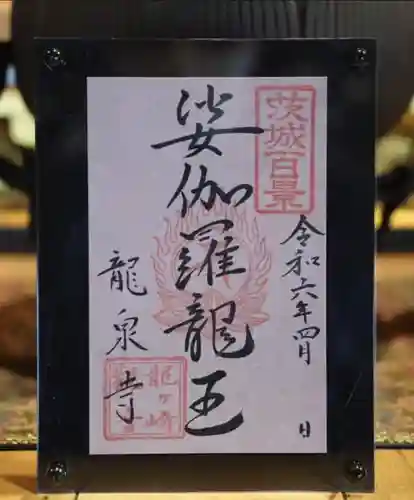 茨城百景
令和六年四月 日
娑伽羅龍王
龍泉寺